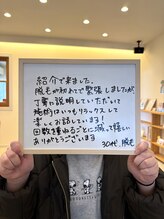 紹介で来ました。
脱毛が初めてで緊張しましたが、
丁寧に説明していただいて
施術はいつもリラックスして
楽しくお話しています！
回数を重ねるごとに減って嬉しい
ありがとうございます
30代 脱毛